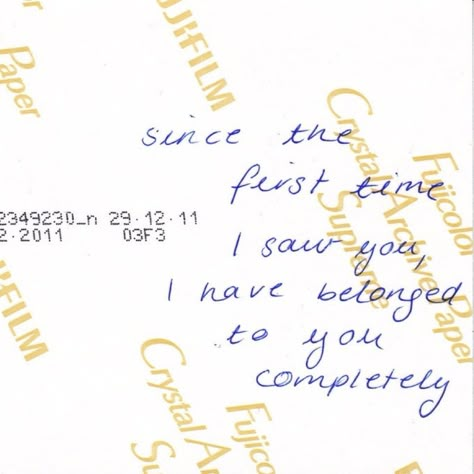 Paper
FUJIFILM
since the
first time
2349230_n 29.12.11
2.2011 03F3
I saw you,
I have belonged
to you
completely
Fujicolor
Crystal Archive Paper
Supreme
FILM
Fujico
Crystal Ar
Su